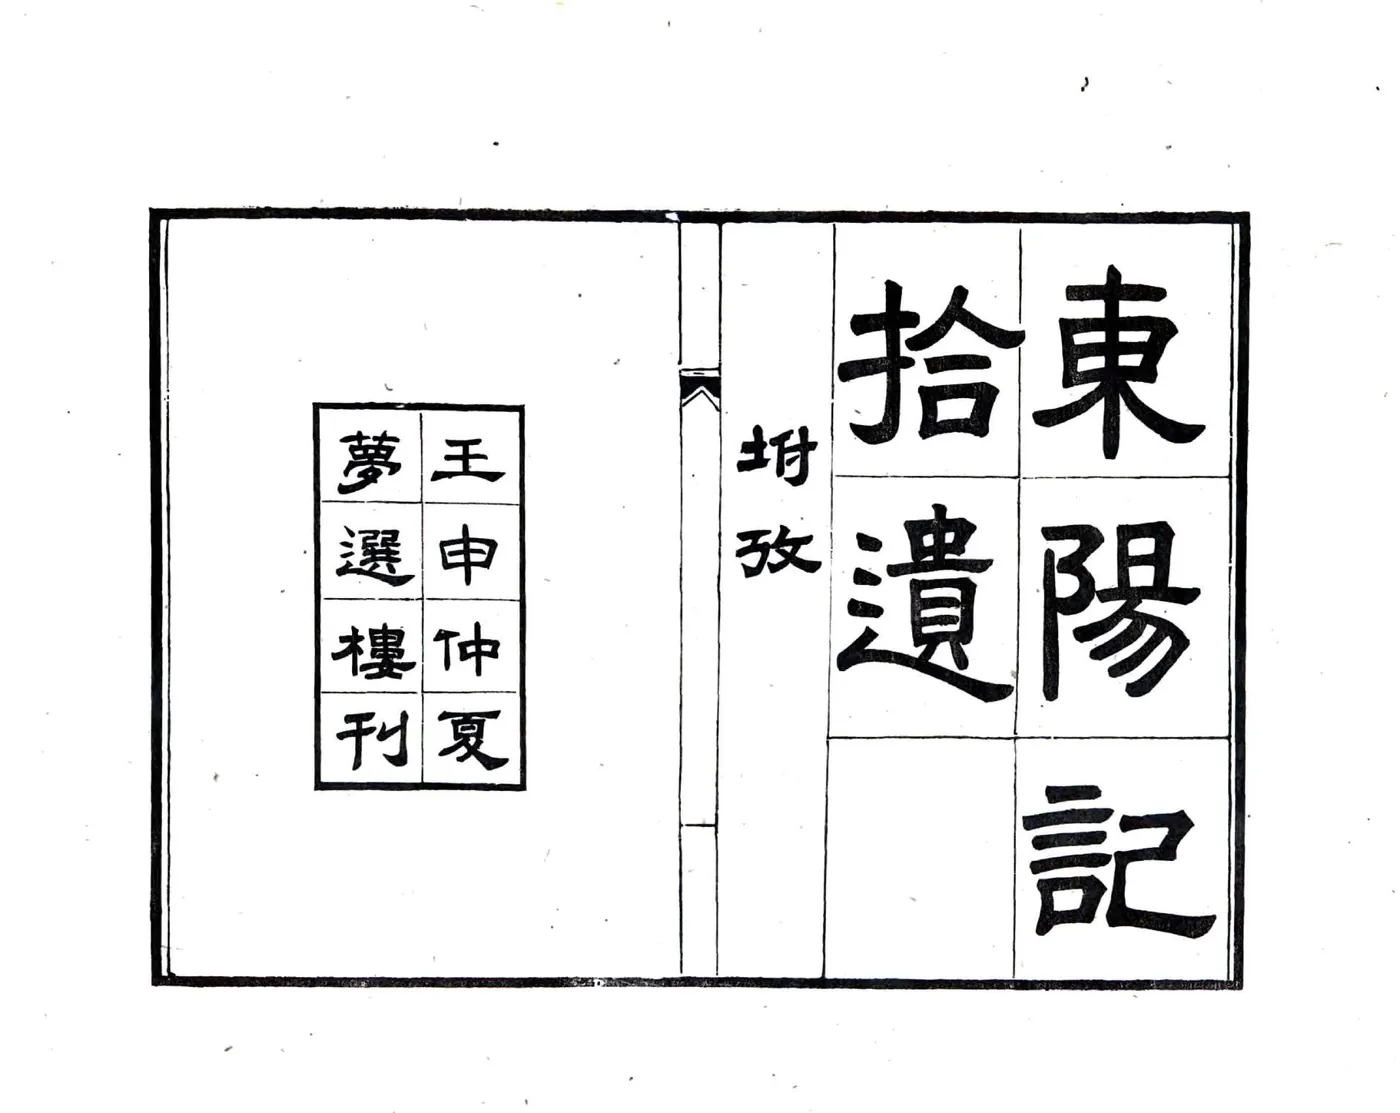 東陽記
拾遺
坿攷
壬申仲夏
夢選樓刊